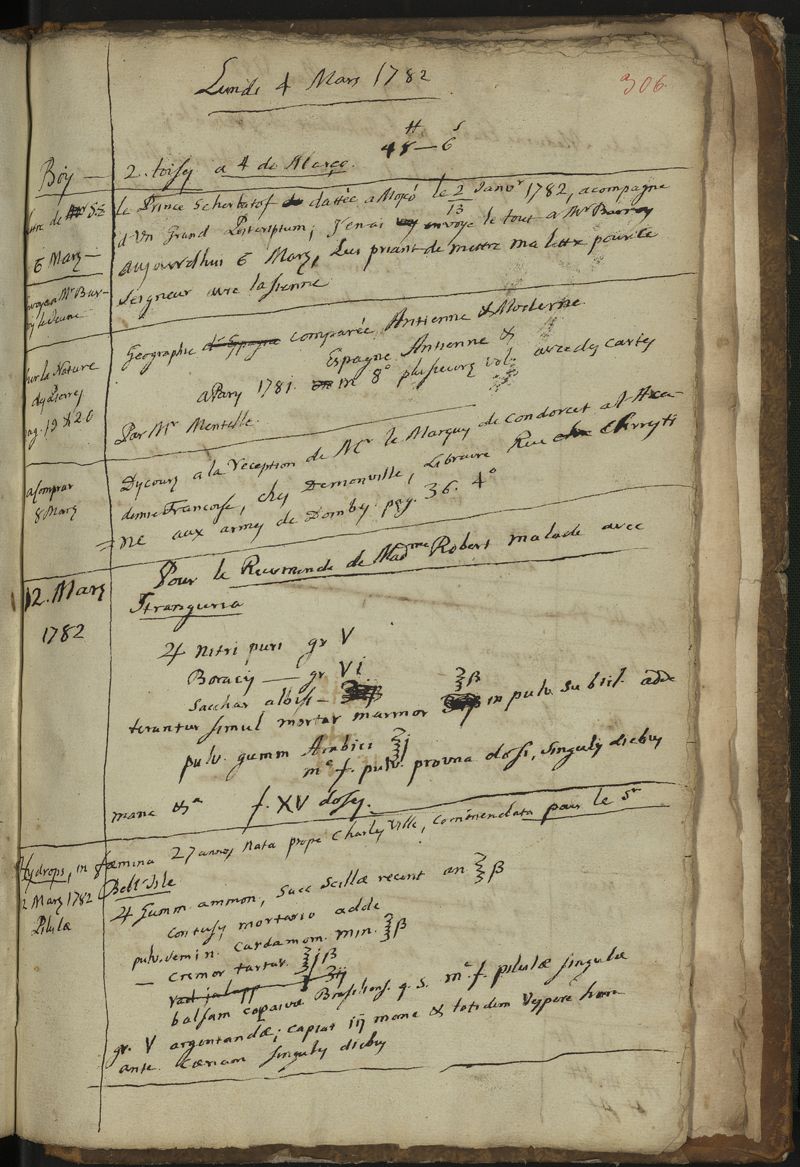 306
Lundi 4 Mars 1782
Boiy — 2. toisey a 4 de Março. 48 ₶ — 6 s
le Prince Scherbatof dattée a Moscó le 2/13 Janvr 1782, acompagne
d'un Grand Postcriptum; J'en ai envoyé le tout a Mr
6 Mars —
aujourdhui 6 Mars, Lui priant de mettre ma lettre pour ce
Seigneur avec la sienne
envoyé a Mr Bur-
Sur la Nature
dy Pierrey
pag. 19 & 20
Geographie d'Espagne comparée, Antienne & Moderne
Espagne Antienne &
a Pary 1781. in 8° plusieurs vol. avec dey cartey
Par Mr Mentelle.
a Comprar
8 Mars
Dycours a la réception de Mr le Marquy de Condorcet a l'Aca-
demie Francoise, chey Demonville, Libraire Rue Chrysti
=ne aux armey de Domby. pag. 36. 4°
12. Mars
1782
Pour le Reverende de Madme Robert malade avec
Stranguria
♃ Nitri puri gr V
Boracis — gr Vi
Sacchar albiss — ʒβ
terantur simul mortar marmor in pulv. subtil. adde
pulv. gumm Arabici ʒj
m.a f. pulv. pro una dosi, singuly diebuy
mane f. XV dosey.
Hydrops, in fæmina 27 annoy nata prope Charley Ville, commendata pour le Sr
Bell'Isle
2 Mars 1782
Pilulæ
♃ Gumm ammon, succ Scillæ recent an ʒβ
contusy mortario adde
pulv. semin. cardamom. min. ʒβ
— Cremor tartar. ʒjβ
rad jalapp ʒij
balsam copaivæ Brasiliens. q. s. m.a f. pilulæ singulæ
gr. V argentandæ; capiat iij mane & totidem vespere hora
ante cœnam singuly diebuy